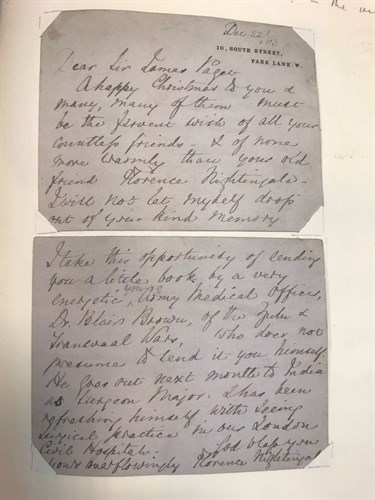 Dec 22/83
10, SOUTH STREET,
PARK LANE. W.
Dear Sir James Paget
A happy Christmas to you &
many, many of them must
be the fervent wish of all your
countless friends - & of none
more warmly than your old
friend Florence Nightingale -
I will not let myself drop
out of your kind memory
I take this opportunity of sending
you a little book by a very
energetic, young Army Medical Officer,
Dr. Blair Brown, of the Zulu &
Transvaal Wars, who does not
presume to send it you himself.
He goes out next month to India
as Surgeon Major. & has been
refreshing himself with seeing
surgical practice in our London
Civil Hospitals.
God bless you
yours overflowingly Florence Nightingale